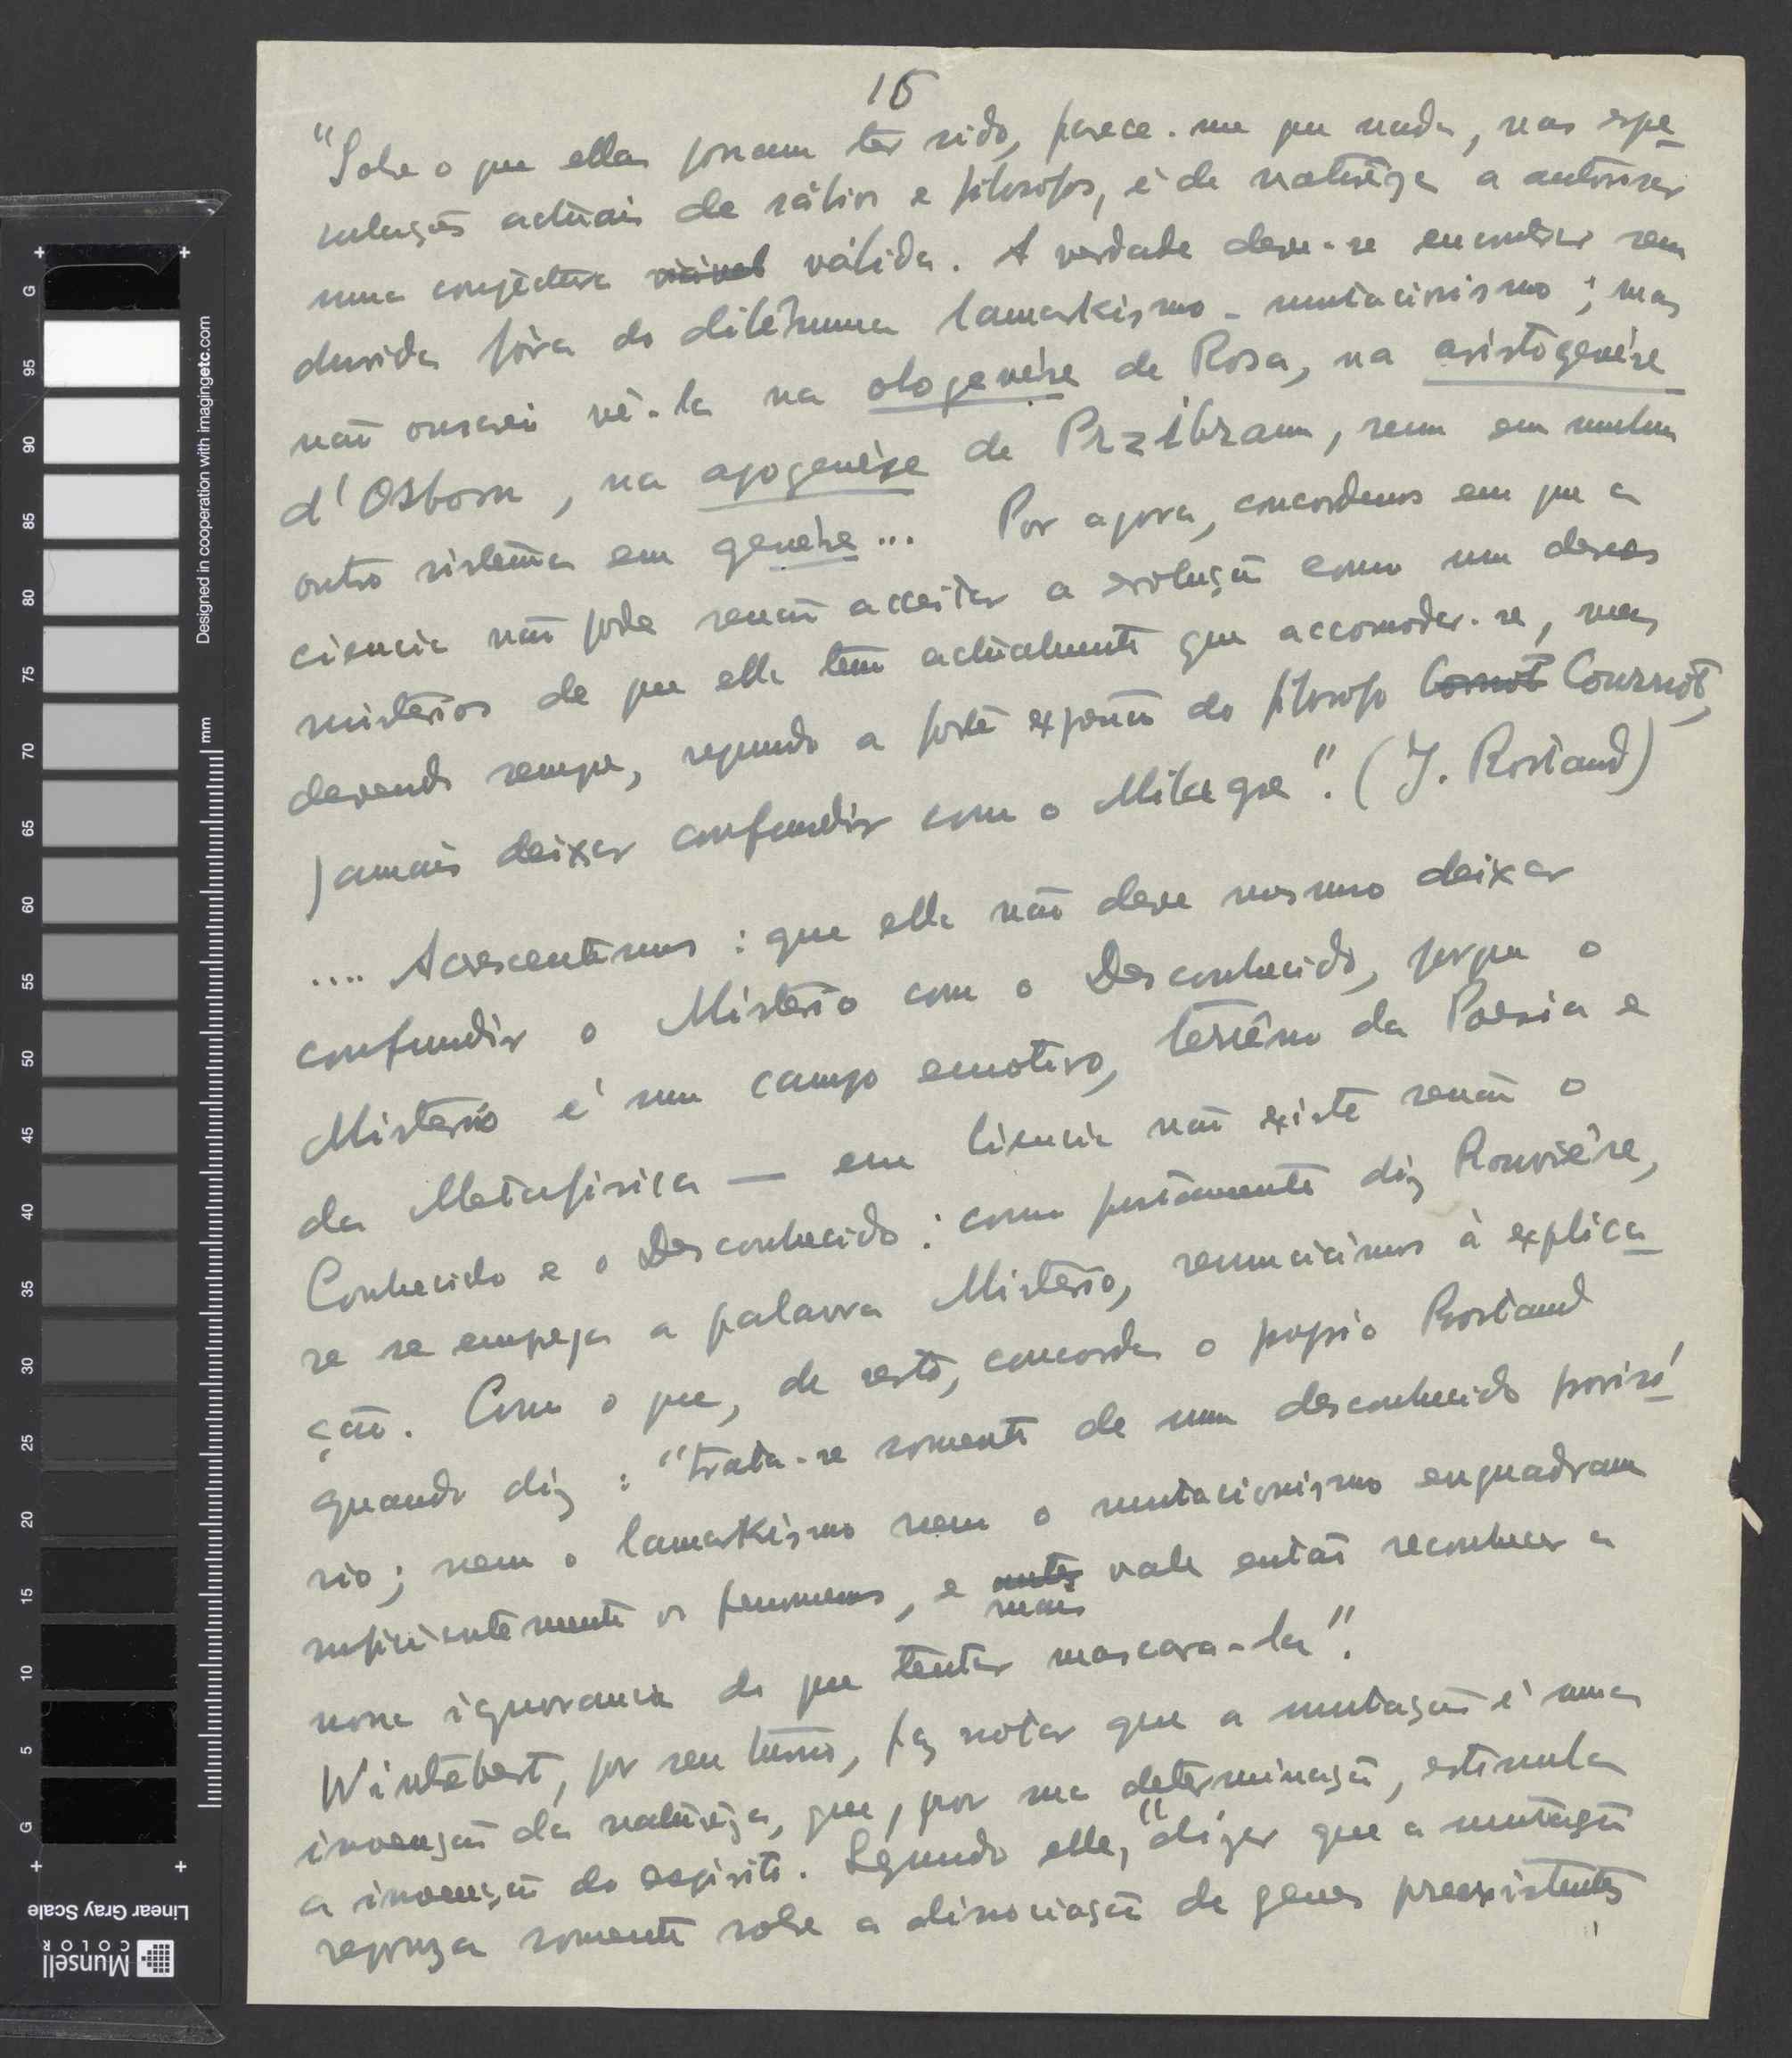 15
"Sobre o que ellas possam ter sido, parece-me que nada, nas espe-
culações actuais de sábios e filosofos, é de naturêza a autorisar
uma conjectura viavel válida. A verdade deve-se encontrar sem
duvida fóra do dilêmma lamarkismo - mutacionismo; mas
não ousarei vê-la na ologenése de Rosa, na aristogenése
d'Osborn, na apogenése de Przibram, nem em nenhum
outro sistema em genése... Por agora, concordemos em que a
ciencia não póde senão acceitar a evolução como um desses
misterios de que ella tem actualmente que accomodar-se, mas
devendo sempre, segundo a forte expressão do filosofo Cornot Cournot,
jamais deixar confundir com o Milagre". (J. Rostand)
.... Acrescentemos: que ella não deve mesmo deixar
confundir o Misterio com o Desconhecido, porque o
Misterio é um campo emotivo, terrêno da Poesia e
da Metafisica — em Ciencia não existe senão o
Conhecido e o Desconhecido: como justamente diz Rouviére,
se se emprega a palavra Misterio, renunciamos à explica-
ção. Com o que, de resto, concorda o proprio Rostand
quando diz: "trata-se somente de um desconhecido provisó-
rio; nem o lamarkismo nem o mutacionismo enquadram
suficientemente os fenomenos, e antes vale então reconhecer a
mais
nossa ignorancia do que tentar mascara-la".
Wintebert, por seu turno, faz notar que a mutação é uma
invenção da naturêza, que, por sua determinação, estimula
a invenção do espirito. Segundo elle, "dizer que a mutação
repousa somente sobre a dissociação de genes preexistentes
Designed in cooperation with imagingetc.com
mm
G
95
90
85
80
75
70
65
60
55
50
45
40
35
30
25
20
15
10
5
G
Linear Gray Scale
Munsell
COLOR